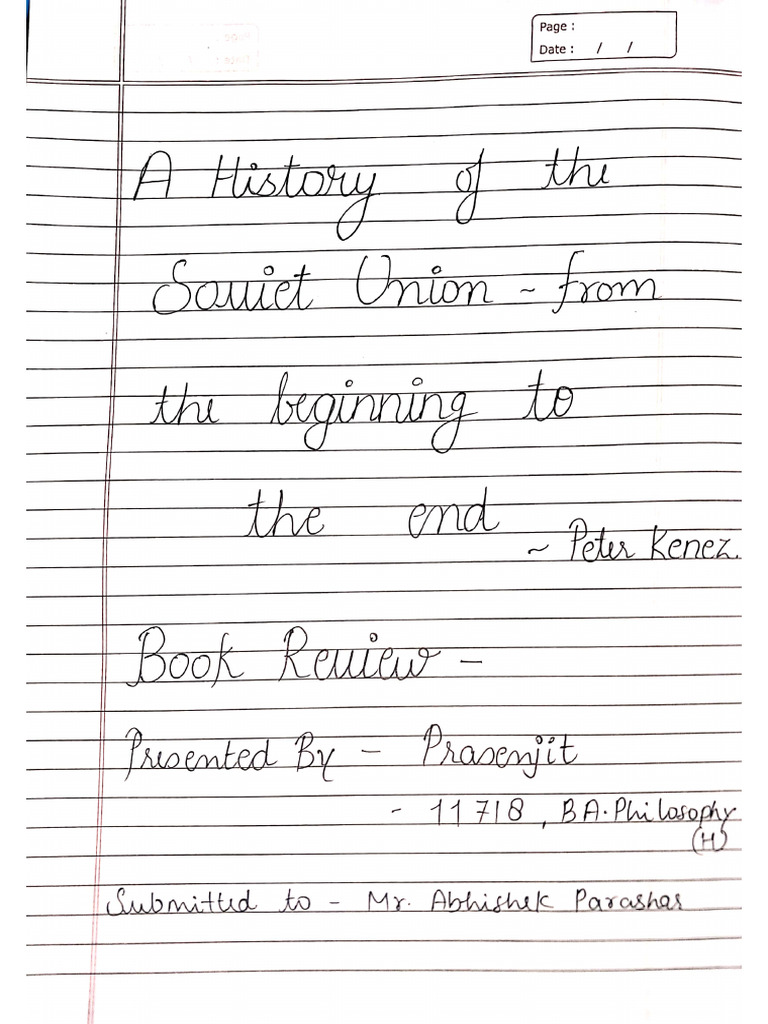 Page :
Date : / /
A History of the
Soviet Union ~ from
the beginning to
the end
~ Peter Kenez.
Book Review -
Presented By - Prasenjit
- 11718, BA. Philosophy
(H)
Submitted to - Mr. Abhishek Parashar